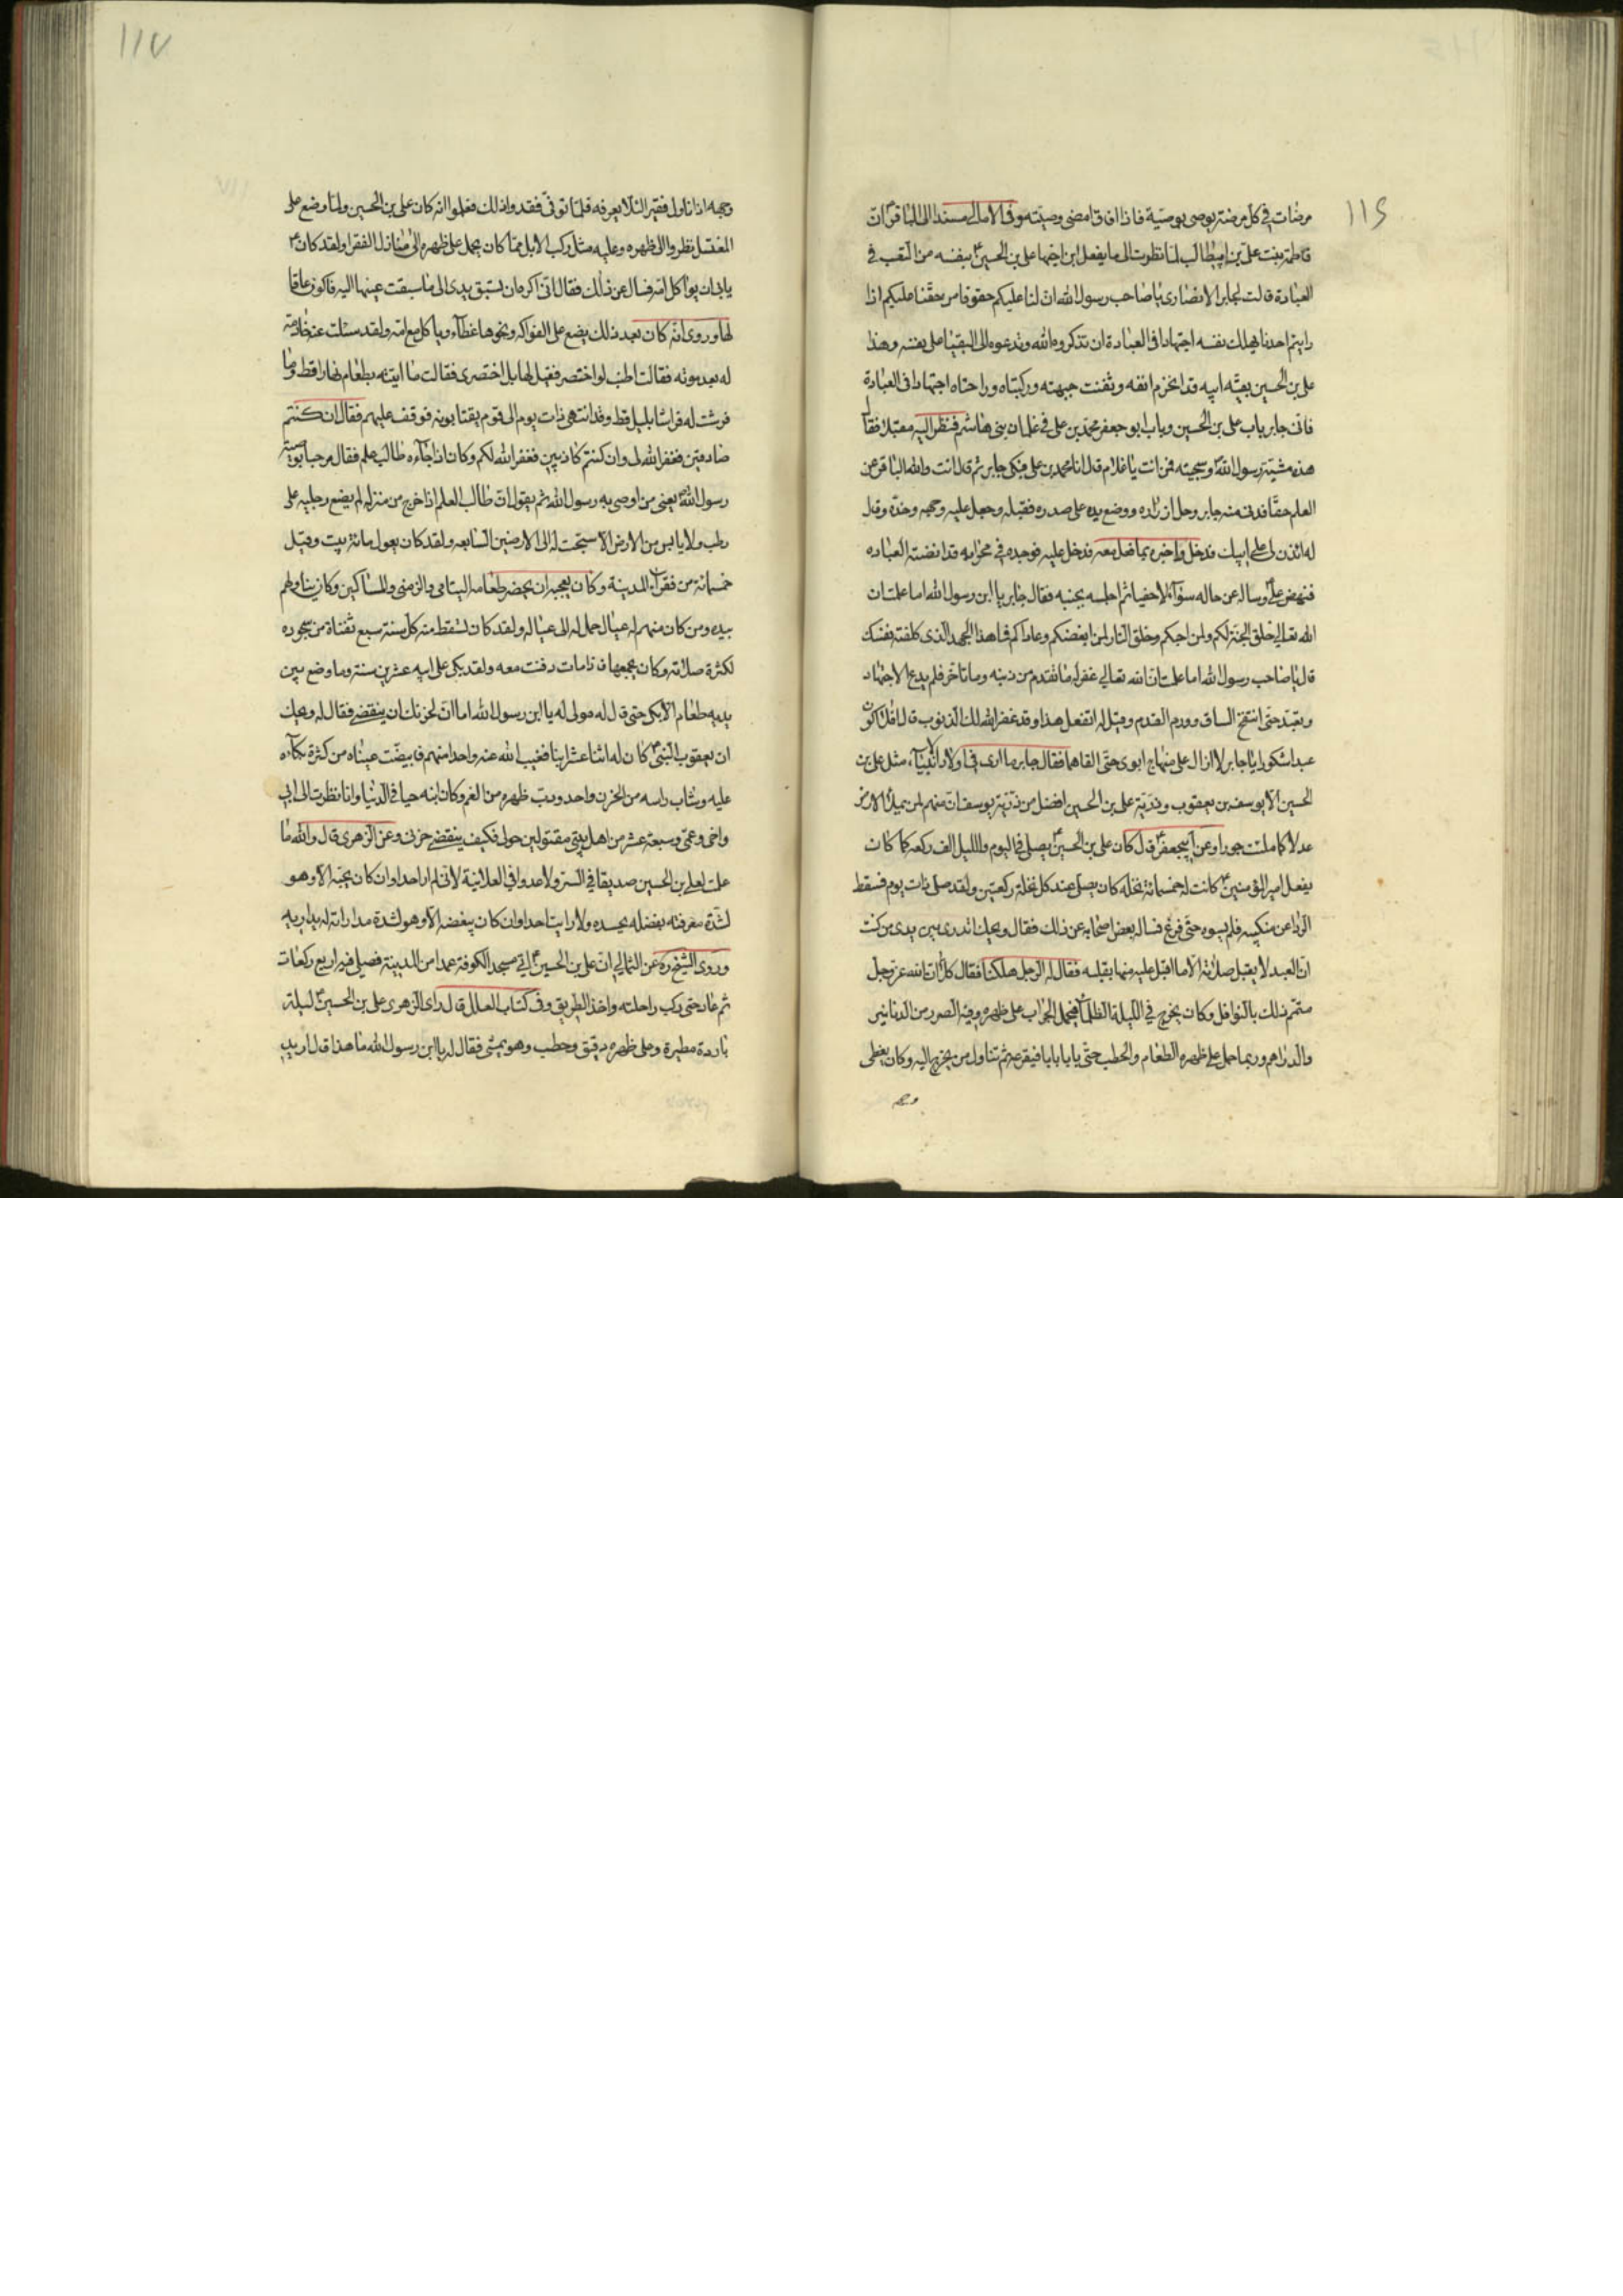 ١١٦
مرضات في كل مرضة يوصي بوصية فاذا افاق امضى وصيته وفي الامالي مسندا الى الباقر ان
فاطمة بنت علي بن ابيطالب لما نظرت الى ما يفعل ابن اخيها علي بن الحسين بنفسه من التعب في
العبادة قالت لجابر الانصاري يا صاحب رسول الله ان لنا عليكم حقوقا من حقنا عليكم اذا
رايتم احدنا يهلك نفسه اجتهادا في العبادة ان تذكروه الله وتدعوه الى البقيا على نفسه وهذا
علي بن الحسين بقية ابيه قد انخرم انفه وثفنت جبهته وركبتاه وراحتاه اجتهادا في العبادة
فاتى جابر باب علي بن الحسين وبالباب ابو جعفر محمد بن علي في غلمان بني هاشم فنظر اليه مقبلا فقا
هذه مشية رسول الله وسجيته فمن انت يا غلام قال انا محمد بن علي فبكى جابر ثم قال انت والله الباقر عن
العلم حقا فدنى منه جابر وحل ازراره ووضع يده على صدره فقبله وجعل عليه وجهه وخده وقال
له ائذن لي على ابيك فدخل واخبره بما فعل معه فدخل عليه فوجده في محرابه قد انضته العباده
فنهض علي وساله عن حاله سؤالا حفيا ثم اجلسه بجنبه فقال جابر يا ابن رسول الله اما علمت ان
الله تعالى خلق الجنة لكم ولمن احبكم وخلق النار لمن ابغضكم وعاداكم فما هذا الجهد الذي كلفته نفسك
قال يا صاحب رسول الله اما علمت ان الله تعالى غفر له ما تقدم من ذنبه وما تاخر فلم يدع الاجتهاد
وتعبد حتى انتفخ الساق وورم القدم وقيل له اتفعل هذا وقد غفر الله لك الذنوب قال افلا اكون
عبدا شكورا يا جابر لا ازال على منهاج ابوي حتى القاهما فقال جابر ما ارى في اولاد الانبياء مثل علي بن
الحسين الا يوسف بن يعقوب وذرية علي بن الحسين افضل من ذرية يوسف ان منهم لمن يملأ الارض
عدلا كما ملئت جورا وعن ابيجعفر قال كان علي بن الحسين يصلي في اليوم والليل الف ركعه كما كان
يفعل امير المؤمنين كانت له خمسمائة نخله كان يصلي عند كل نخلة ركعتين ولقد صلى ذات يوم فسقط
الردا عن منكبيه فلم يسوه حتى فرغ فساله بعض اصحابه عن ذلك فقال ويحك تدري بين يدي من كنت
ان العبد لا يقبل صلاته الا ما اقبل عليه منها بقلبه فقال له الرجل هلكنا فقال كلا ان الله عز وجل
متمم ذلك بالنوافل وكان يخرج في الليلة الظلماء فيحمل الجراب على ظهره وفيه الصرر من الدنانير
والدراهم وربما حمل على ظهره الطعام والحطب حتى يا بابا بابا فيقرعه ثم تناول من يخرج اليه وكان يغطي
وجه
١١٧
وجهه اذا ناول فقيرا لئلا يعرفه فلما توفى فقدوا ذلك فعلموا انه كان علي بن الحسين ولما وضع على
المغتسل نظروا الى ظهره وعليه مثل ركب الابل مما كان يحمل على ظهره الى منازل الفقرا ولقد كان
يابى ان يواكل امه فسال عن ذلك فقال انى اكره ان تسبق يدى الى ما سبقت عينها اليه فاكون عاقا
لها وروى انه كان بعد ذلك يضع على الفواكه ونحوها غطاء وياكل مع امه ولقد سئلت عنه خادمته
له بعد موته فقالت اطنب او اختصر فقيل لها بل اختصرى فقالت ما اتيته بطعام نهارا قط وما
فرشت له فراشا بليل قط وقد انتهى ذات يوم الى قوم يغتابونه فوقف عليهم فقال ان كنتم
صادقين فغفر الله لي وان كنتم كاذبين فغفر الله لكم وكان اذا جاءه طالب علم فقال مرحبا بوصية
رسول الله يعني من اوصى به رسول الله ثم يقول ان طالب العلم اذا خرج من منزله لم يضع رجليه على
رطب ولا يابس من الارض الا سبحت له الى الارضين السابعه ولقد كان يعول مائة بيت وقيل
خمسمائة من فقراء المدينة وكان يعجبه ان يحضر طعامه اليتامى والزمنى والمساكين وكان يناولهم
بيده ومن كان منهم له عيال حمل له الى عياله ولقد كان تسقط منه كل سنة سبع ثفنات من سجوده
لكثرة صلاته وكان يجمعها فاذا مات دفنت معه ولقد بكى على ابيه عشرين سنة وما وضع بين
يديه طعام الا بكى حتى قال له مولى له يا ابن رسول الله اما ان لحزنك ان ينقضى فقال له ويحك
ان يعقوب النبي كان له اثنا عشر ابنا فغيب الله عنه واحدا منهم فابيضت عيناه من كثرة بكائه
عليه وشاب راسه من الحزن واحدودب ظهره من الغم وكان ابنه حيا في الدنيا وانا نظرت الى ابي
واخي وعمي وسبعة عشر من اهل بيتي مقتولين حولي فكيف ينقضى حزني وعن الزهرى قال والله ما
علمت لعلي بن الحسين صديقا في السر ولا عدوا في العلانية لاني لم ار احدا وان كان يحبه الا وهو
لشدة معرفته بفضله يحسده ولا رايت احدا وان كان يبغضه الا وهو لشدة مداراته له يداريه
وروى الشيخ ره عن الثمالي ان علي بن الحسين اتى مسجد الكوفة عمدا من المدينة فصلى فيه اربع ركعات
ثم عاد حتى ركب راحلته واخذ الطريق وفي كتاب العلل قال راى الزهرى علي بن الحسين ليلة
باردة مطيرة وعلى ظهره دقيق وحطب وهو يمشى فقال له يا ابن رسول الله ما هذا قال اريد